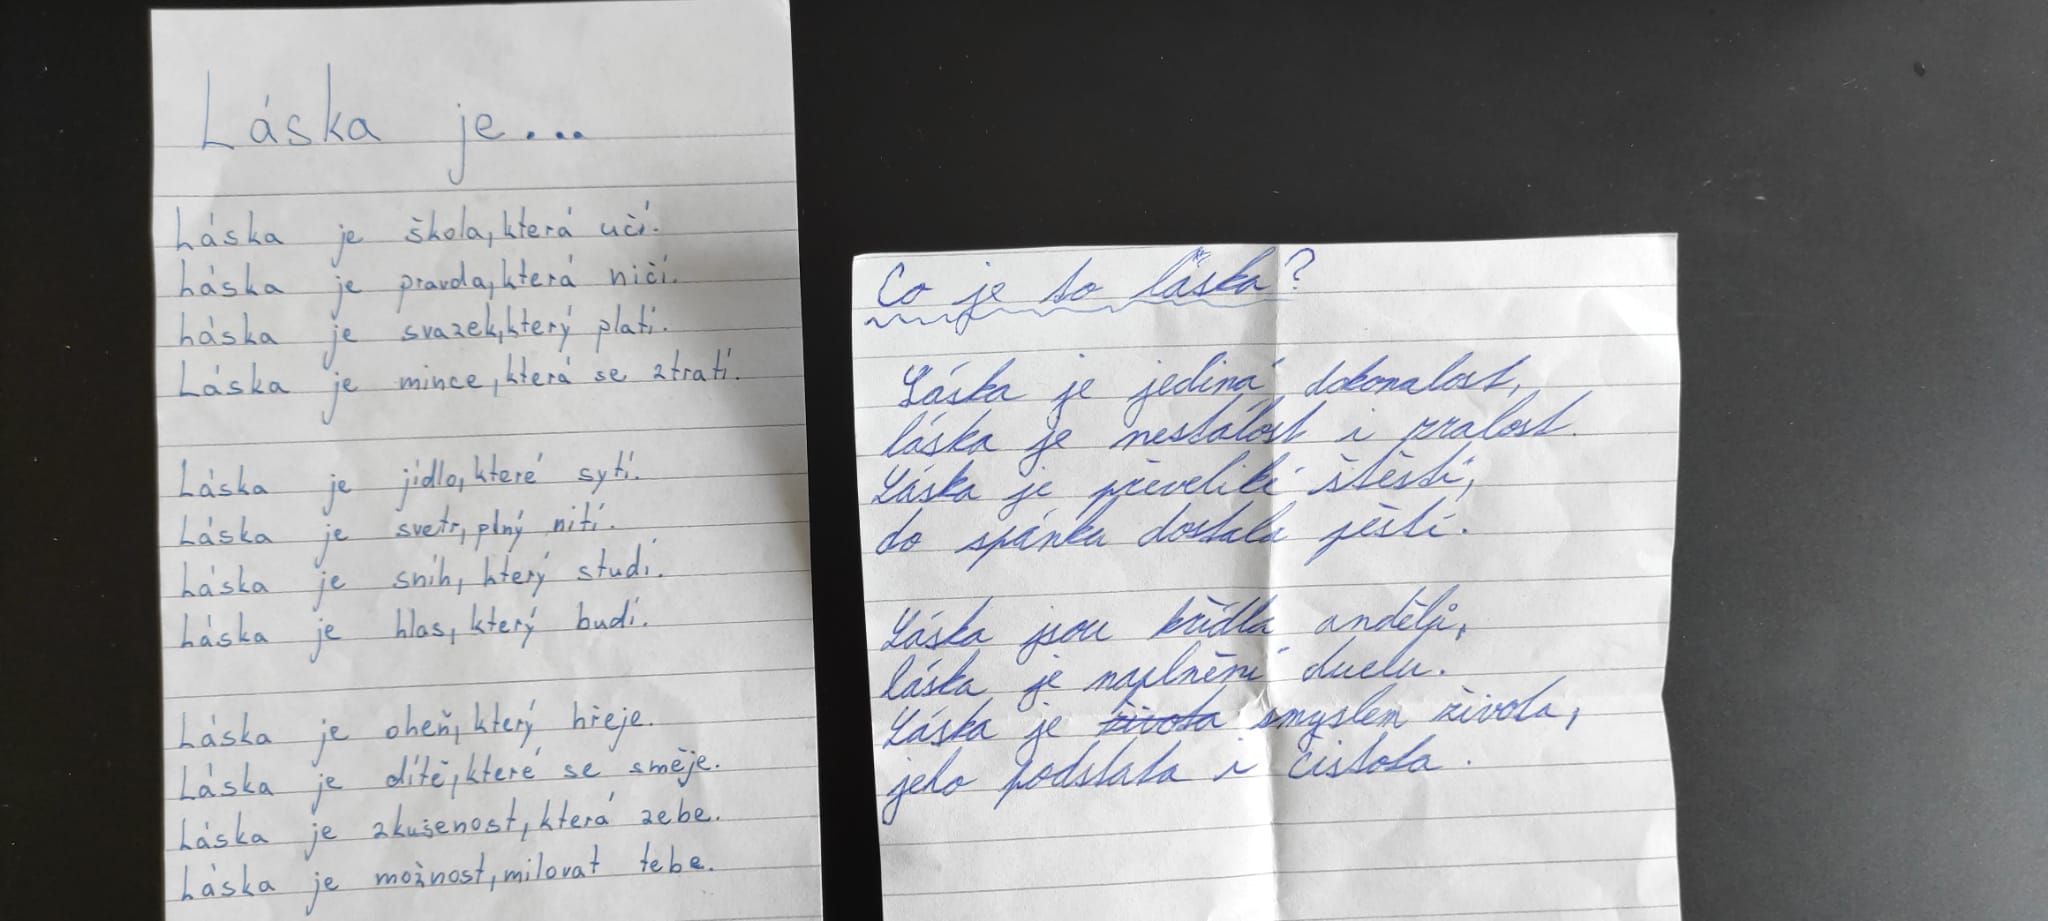 Láska je...
Láska je škola, která učí.
Láska je pravda, která ničí.
Láska je svazek, který platí.
Láska je mince, která se ztratí.
Láska je jídlo, které sytí.
Láska je svetr, plný nití.
Láska je sníh, který studí.
Láska je hlas, který budí.
Láska je oheň, který hřeje.
Láska je dítě, které se směje.
Láska je zkušenost, která zebe.
Láska je možnost, milovat tebe.
Co je to láska?
Láska je jediná dokonalost,
láska je nestálost i zralost.
Láska je převeliké štěstí,
do spánku dostala pěstí.
Láska jsou křídla andělů,
láska je naplnění duelu.
Láska je života smyslem života,
jeho podstata i čistota.